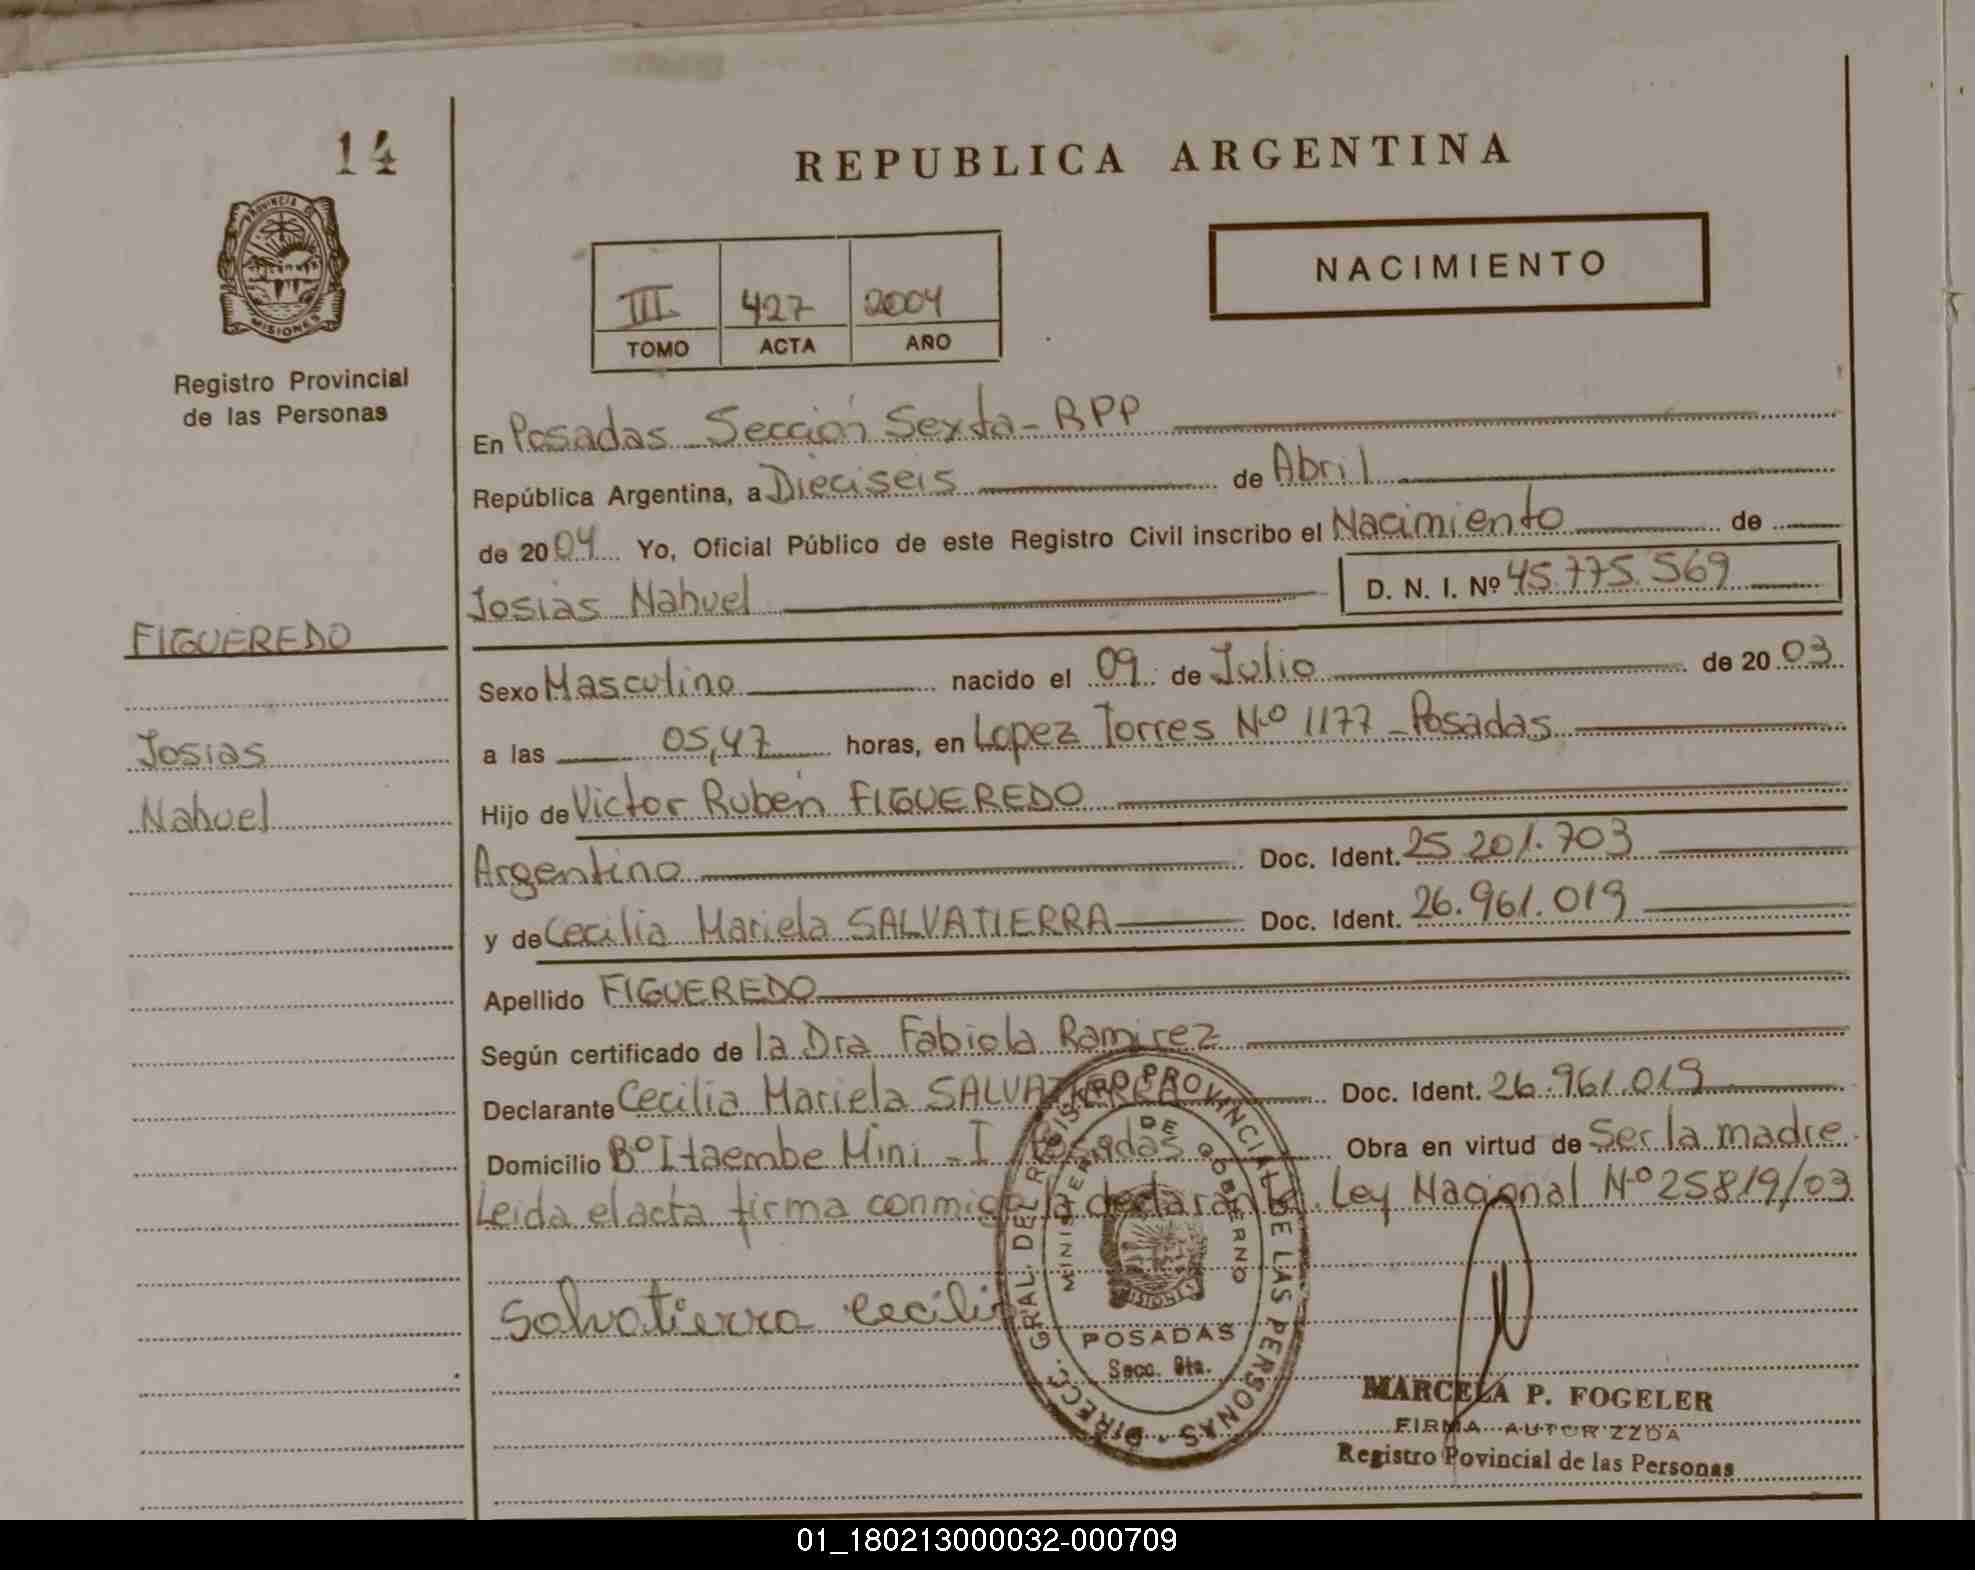 14
REPUBLICA ARGENTINA
PROVINCIA DE
MISIONES
Registro Provincial
de las Personas
III 427 2004
TOMO ACTA AÑO
NACIMIENTO
En Posadas Sección Sexta - RPP
República Argentina, a Dieciseis de Abril
de 2004 Yo, Oficial Público de este Registro Civil inscribo el Nacimiento de
Josias Nahuel D. N. I. Nº 45.775.569
FIGUEREDO
Josias
Nahuel
Sexo Masculino nacido el 09 de Julio de 2003
a las 05,47 horas, en Lopez Torres Nº 1177 - Posadas
Hijo de Victor Rubén FIGUEREDO
Argentino Doc. Ident. 25.201.703
y de Cecilia Mariela SALVATIERRA Doc. Ident. 26.961.019
Apellido FIGUEREDO
Según certificado de la Dra Fabiola Ramirez
Declarante Cecilia Mariela SALVATIERRA Doc. Ident. 26.961.019
Domicilio Bº Itaembe Mini - I Posadas Obra en virtud de Ser la madre
Leida el acta firma conmigo la declarante. Ley Nacional Nº 25819/03
Salvatierra Cecilia
DIRECC. GRAL. DEL REGISTRO PROVINCIAL DE LAS PERSONAS
MINISTERIO DE GOBIERNO
MISIONES
POSADAS
Secc. 6ta.
MARCELA P. FOGELER
FIRMA AUTORIZZDA
Registro Povincial de las Personas
01_180213000032-000709